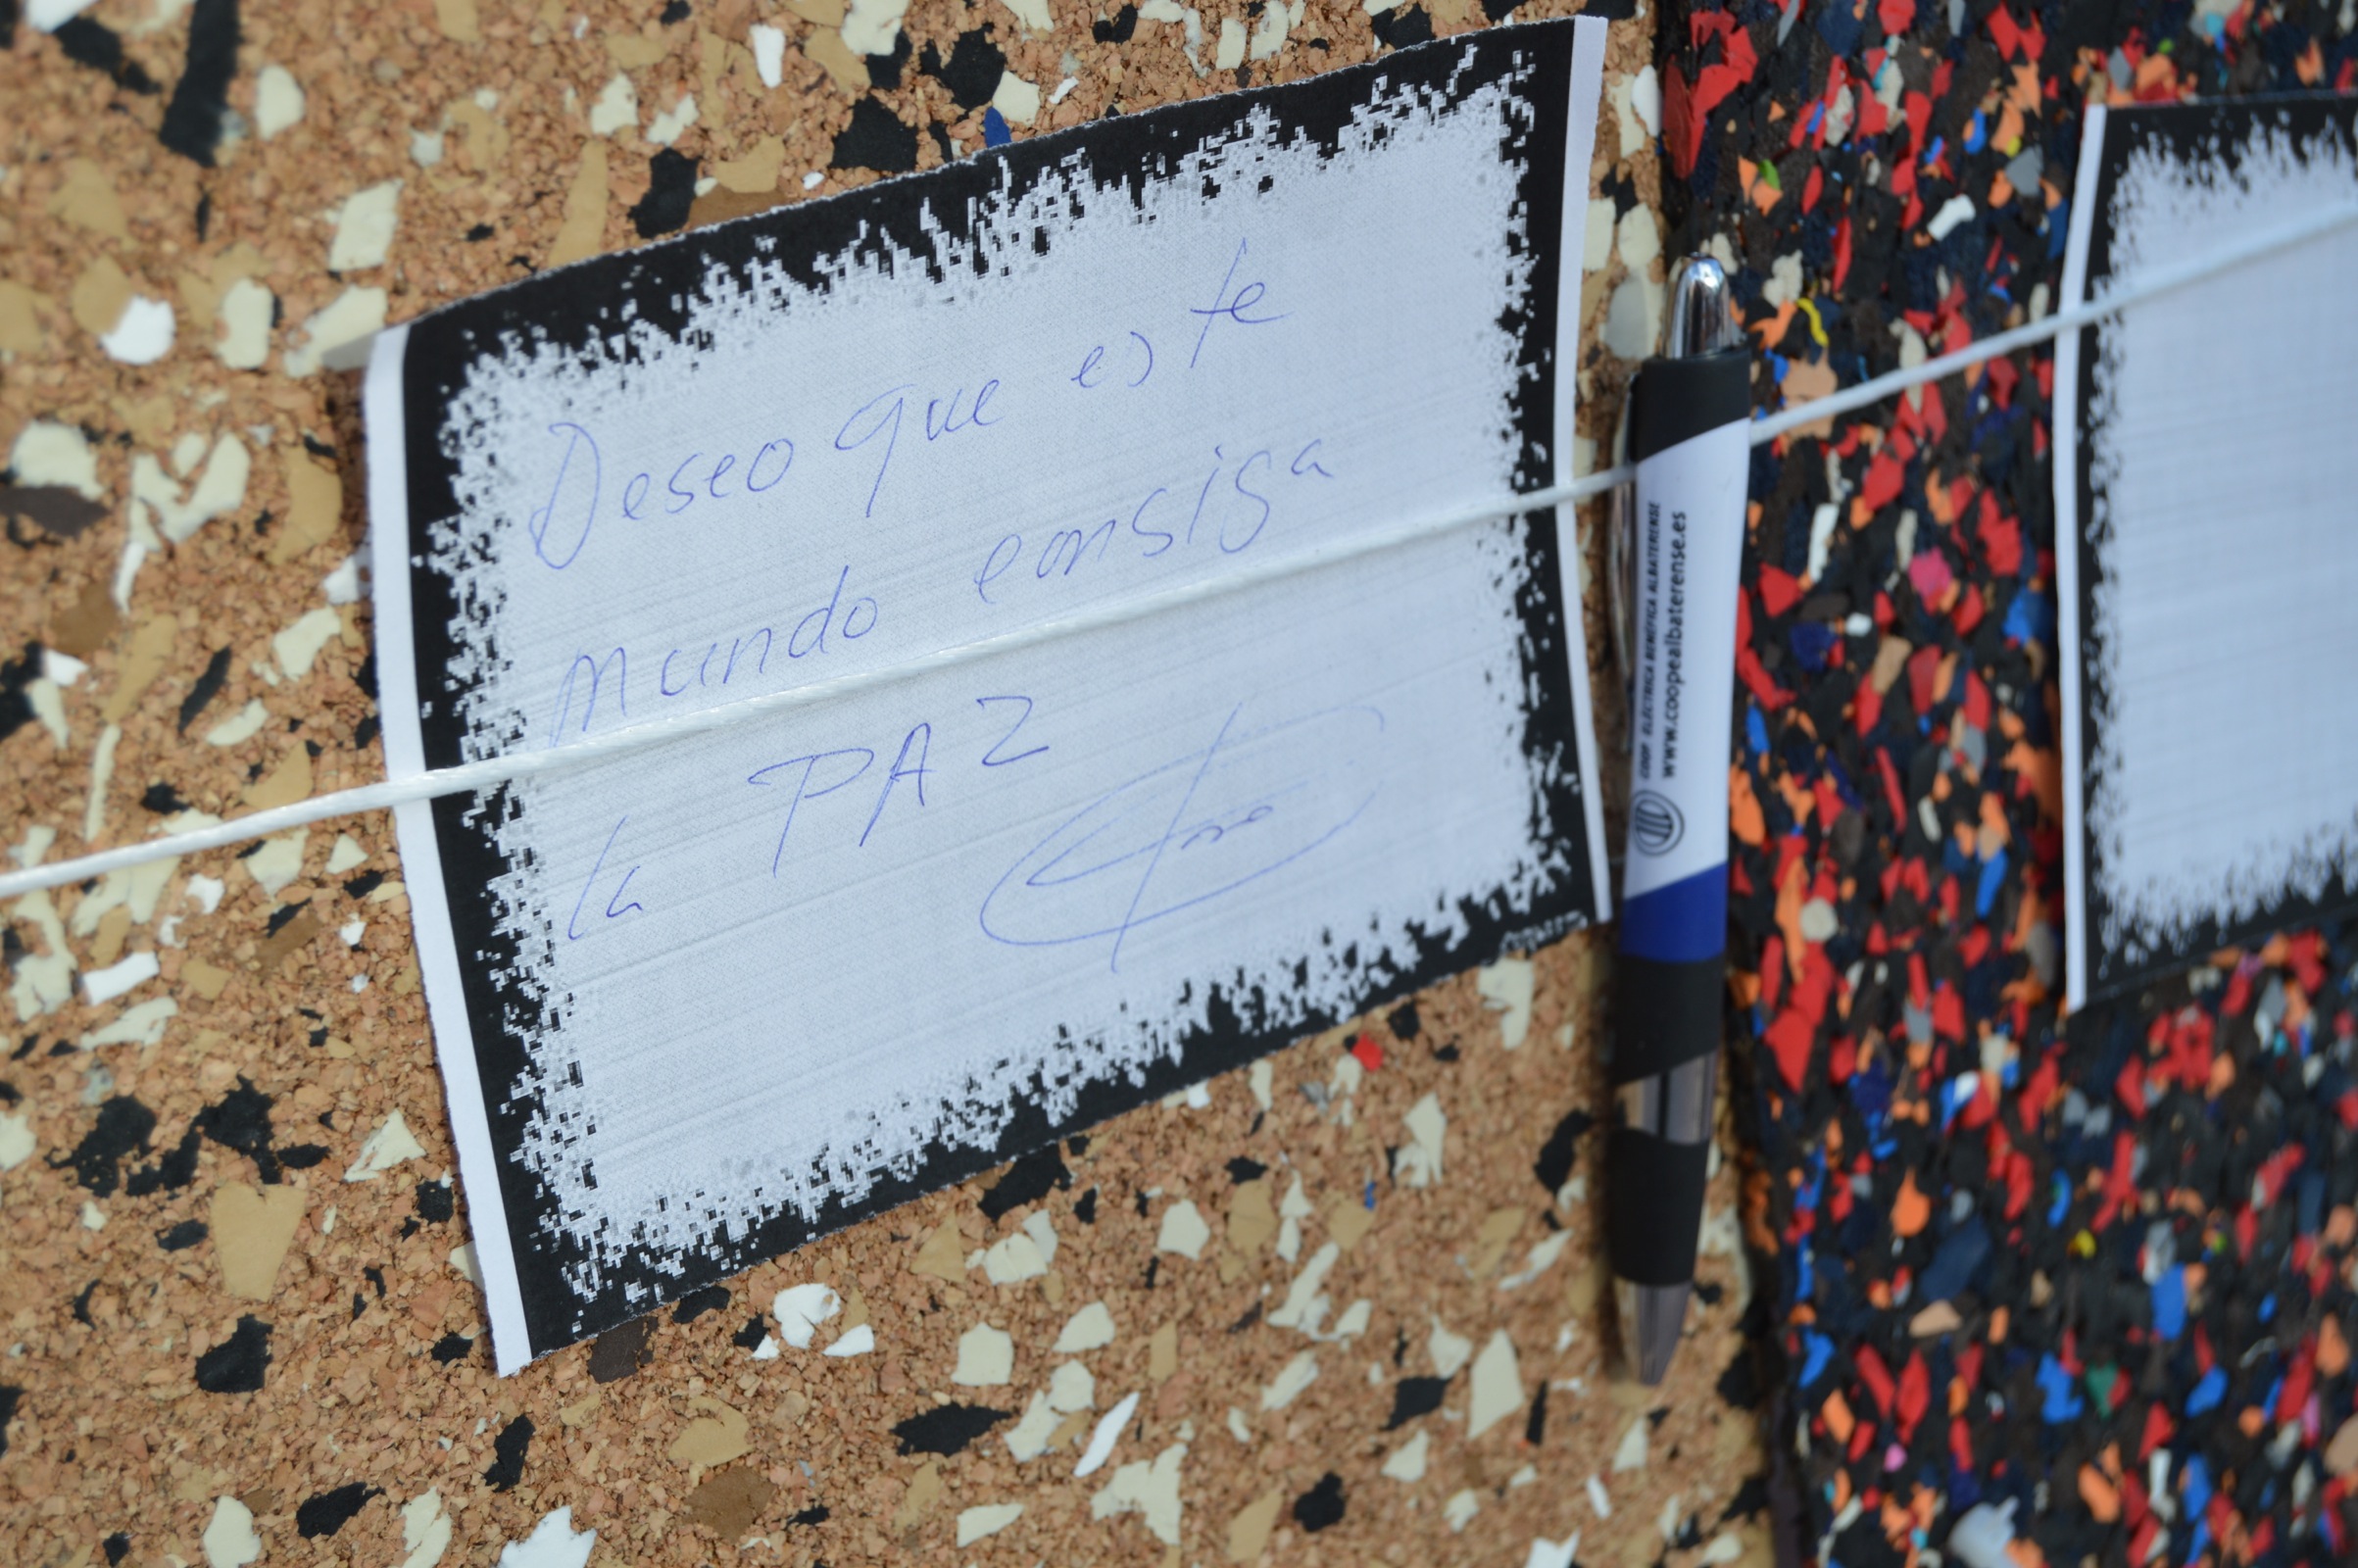 Deseo que este
Mundo consiga
la PAZ
COOP. ELÉCTRICA BENÉFICA ALBATERENSE
www.coopealbaterense.es